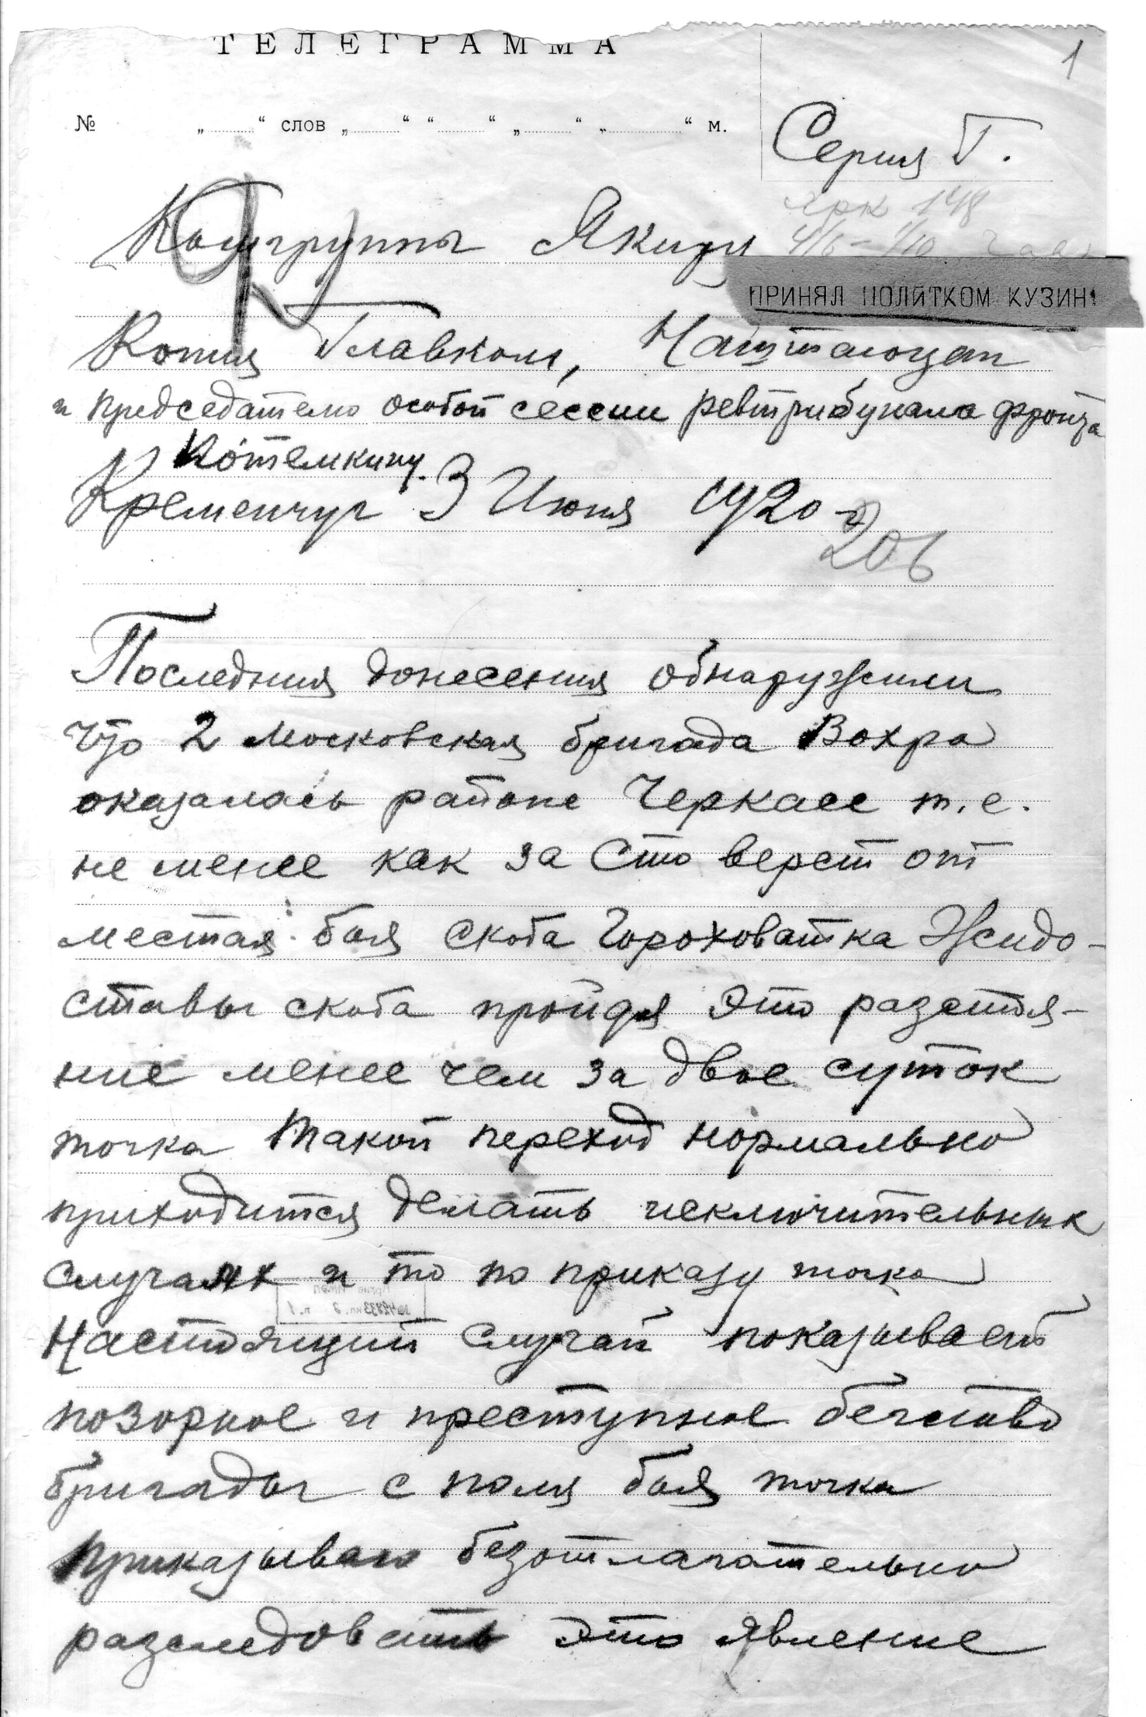 ТЕЛЕГРАММА
1
№ „ “ слов „ “ “ “ „ “ „ “ м.
Серия Г.
148
Комгруппы Якиру
ПРИНЯЛ ПОЛИТКОМ КУЗИН
Копия Главком,
и председателю особой сессии ревтрибунала фронта
Потемкину.
Кременчуг 3 Июня 1920 г
206
Последния донесения обнаружили
что 2 московская бригада Вохра
оказалась районе Черкасс т.е.
не менее как за сто верст от
местая боя скоба Гороховатка Жидо-
ставы скоба пройдя это разстоя-
ние менее чем за двое суток
точка такой переход нормально
приходится делать исключительных
случаях и то по приказу точка
Настоящий случай показывает
позорное и преступное бегство
бригады с поля боя точка
Приказываю безотлагательно
разследовать это явление